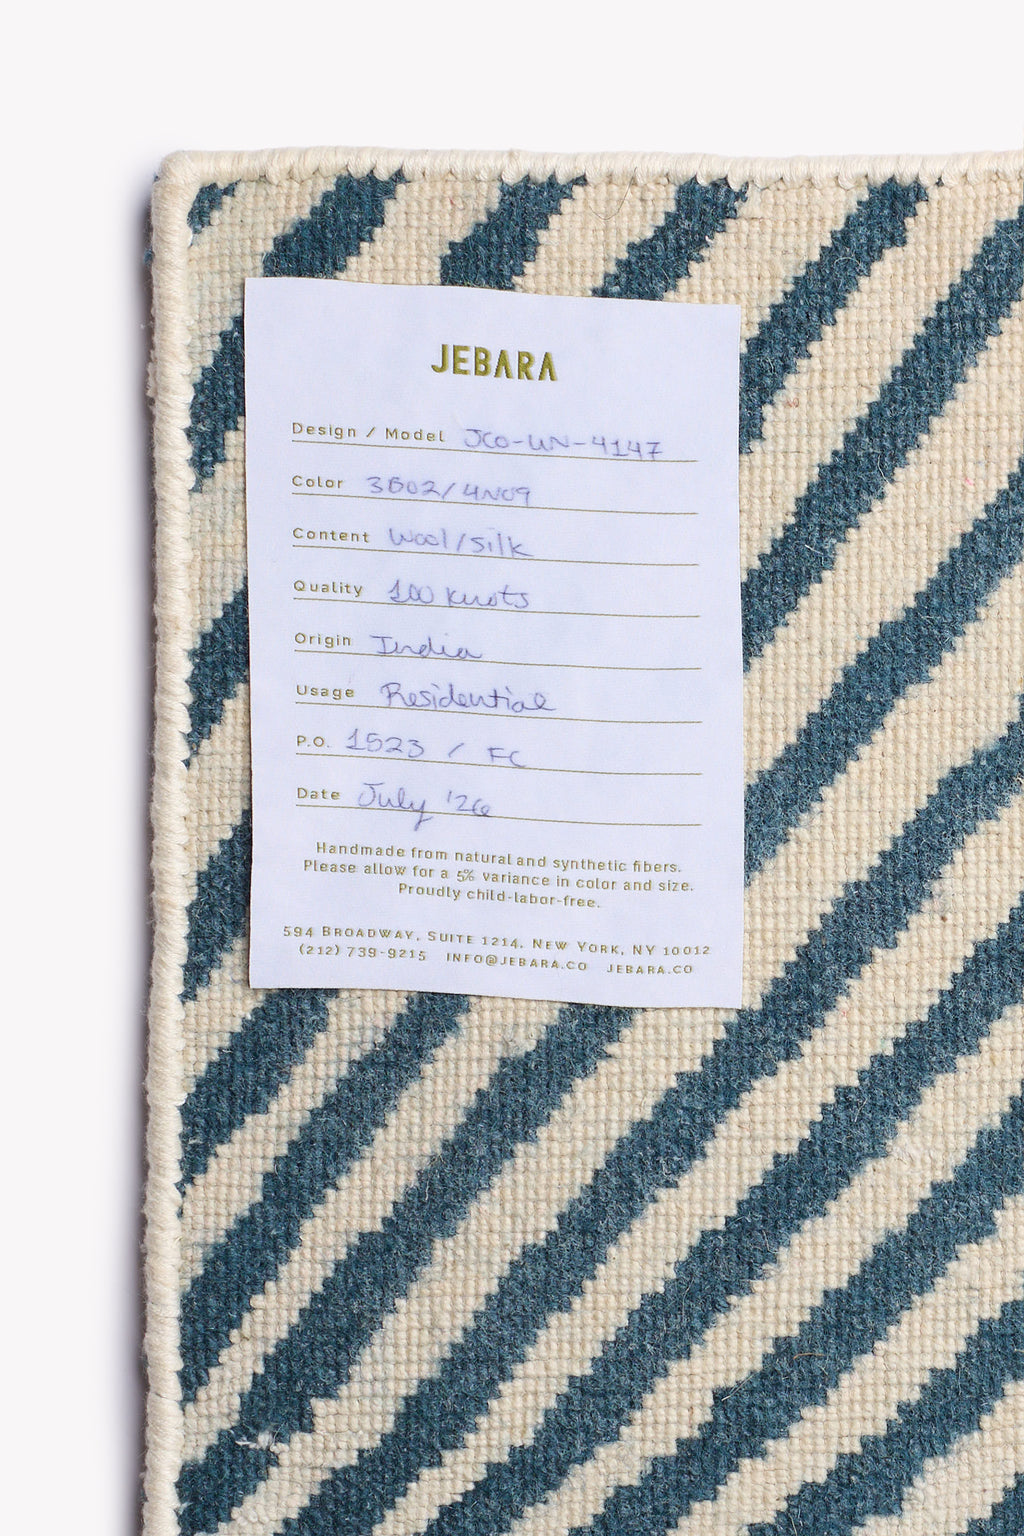 JEBARA
Design / Model JCO-UN-4147
Color 3B02/4N09
Content Wool/Silk
Quality 100 Knots
Origin India
Usage Residential
P.O. 1523 / FC
Date July '26
Handmade from natural and synthetic fibers.
Please allow for a 5% variance in color and size.
Proudly child-labor-free.
594 BROADWAY, SUITE 1214, NEW YORK, NY 10012
(212) 739-9215 INFO@JEBARA.CO JEBARA.CO